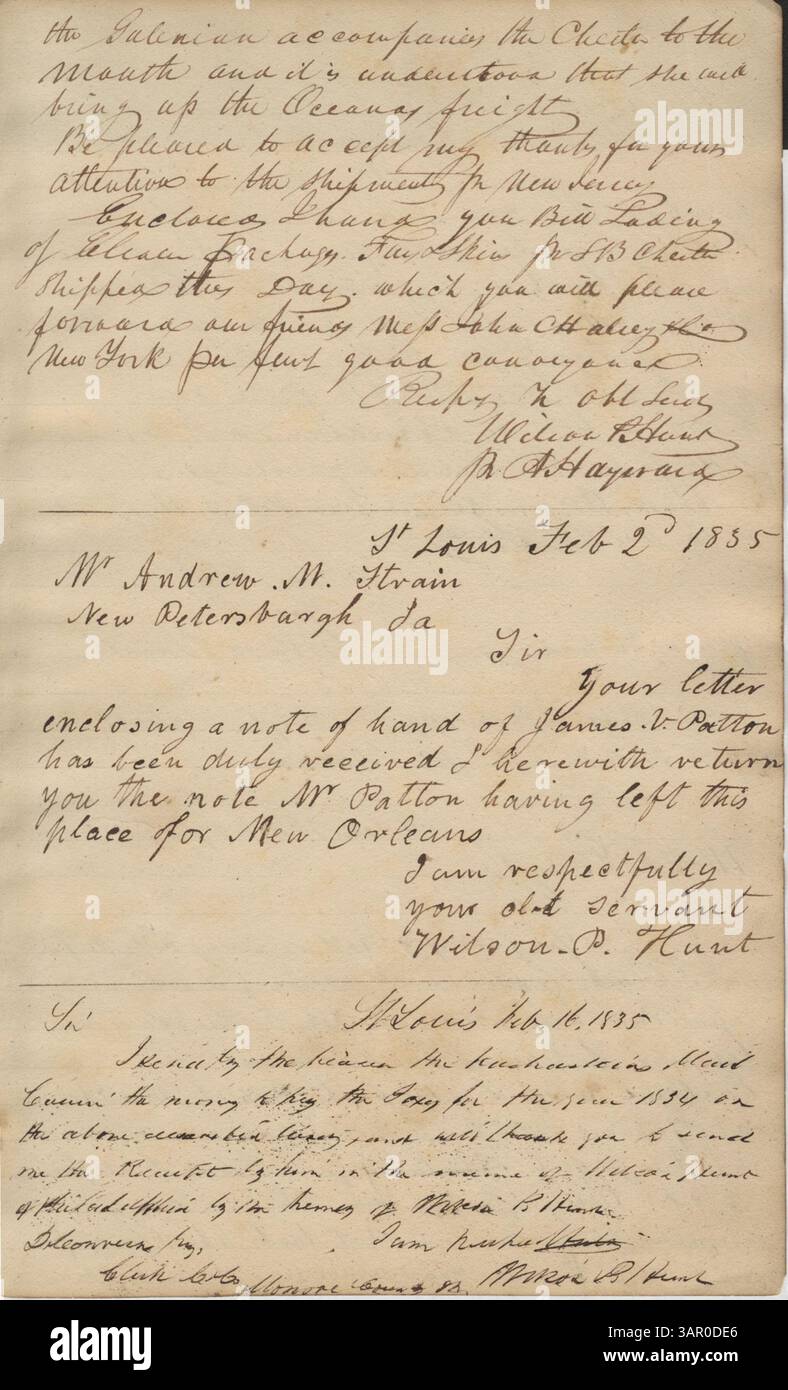 the Galenian accompanies the Chester to the
Mouth and it is understood that she will
bring up the Oceanas freight
Be pleased to accept my thanks for your
attention to the shipments for New Jersey
Enclosed I hand you Bill Lading
of Eleven Packages Furs & Skins pr SB Chester
shipped this Day. which you will please
forward our friends Mess John C Halsey & Co
New York per first good conveyance
Respy Yr Obt Servt
Wilson P. Hunt
Pr A Hayward
St Louis Feb 2d 1835
Mr Andrew. M. Strain
New Petersburgh Ia
Sir
Your letter
enclosing a note of hand of James. V. Patton
has been duly received I herewith return
you the note Mr Patton having left this
place for New Orleans
I am respectfully
your obt servant
Wilson. P. Hunt
Sir St Louis Feb 16, 1835
I send by the bearer the Mail
the money to pay the Taxes for the year 1834 on
the above and will thank you to send
me the Receipt by him in the name of Wilson Hunt
of Philadelphia by the of Wilson P. Hunt
I am
Clerk Monroe County Wilson P. Hunt
alamy
alamy
Image ID: 3AR0DE6
www.alamy.com